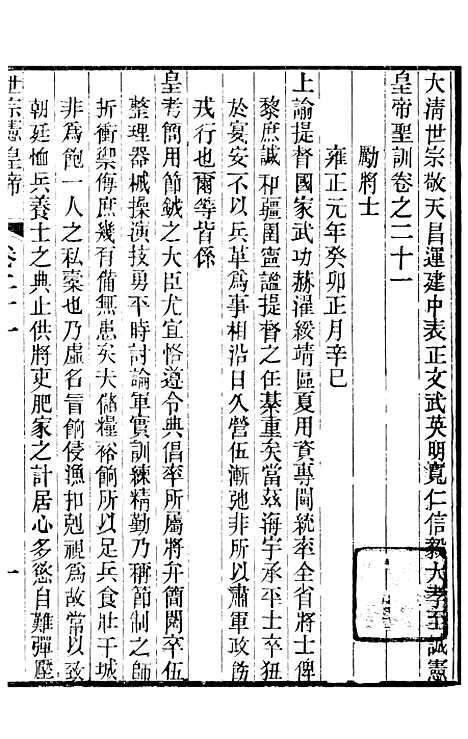 大清世宗敬天昌運建中表正文武英明寬仁信毅大孝至誠憲
皇帝聖訓卷之二十一
勵將士
雍正元年癸卯正月辛巳
上諭提督國家武功赫濯綏靖區夏用資專閫統率全省將士俾
黎庶諴和疆圉寧謐提督之任綦重矣當兹海宇承平士卒狃
於宴安不以兵革爲事相沿日久營伍漸弛非所以肅軍政飭
戎行也爾等皆係
皇考簡用節鉞之大臣尤宜恪遵令典倡率所屬將弁簡閱卒伍
整理器械操演技勇平時討論軍實訓練精勤乃稱節制之師
折衝禦侮庶幾有備無患矣夫儲糧裕餉所以足兵食壯干城
非爲飽一人之私橐也乃虛名冒餉侵漁扣剋視爲故常以致
朝廷恤兵養士之典止供將吏肥家之計居心多慾自難彈壓
世宗憲皇帝
卷二十一
一